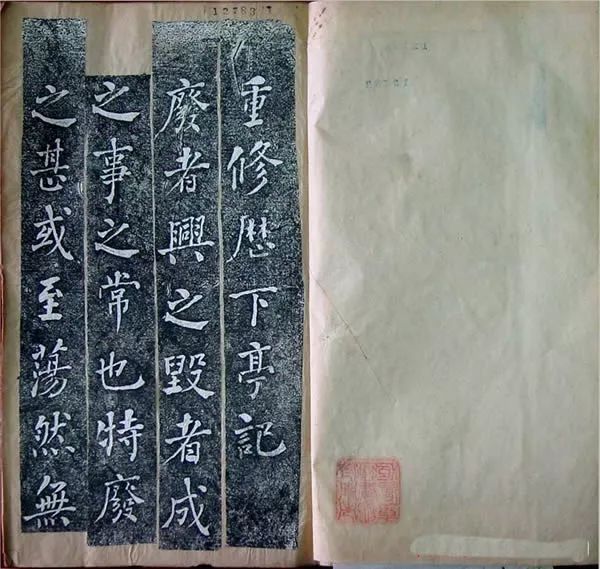 12783
重修厯下亭記
廢者興之毀者成
之事之常也特廢
之甚或至蕩然無